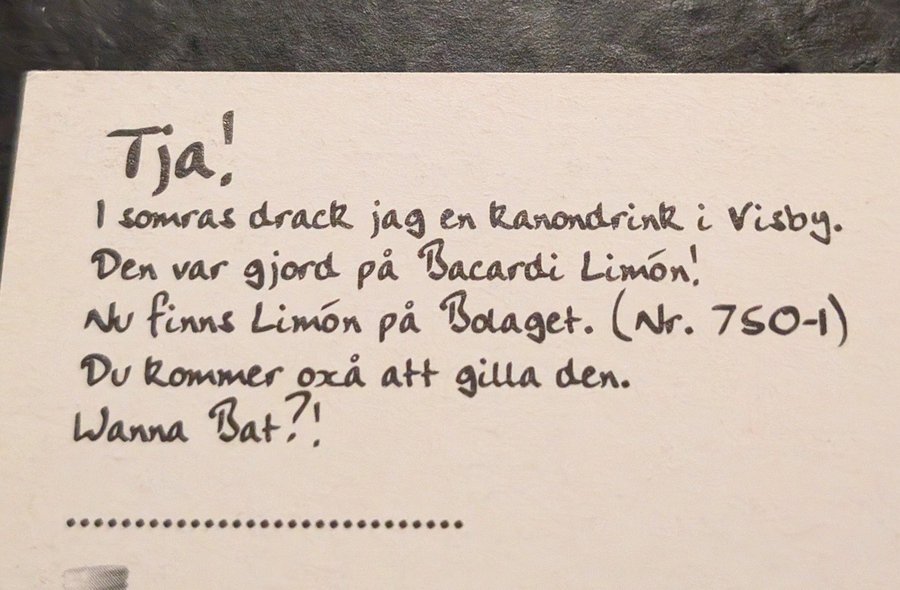 Tja!
I somras drack jag en kanondrink i Visby.
Den var gjord på Bacardi Limón!
Nu finns Limón på Bolaget. (Nr. 750-1)
Du kommer oxå att gilla den.
Wanna Bat?!
..............................